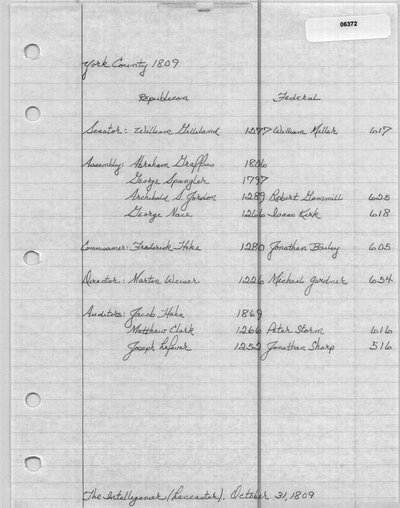 06372
York County 1809
Republican Federal
Senator: William Gilleland 1277 William Miller 617
Assembly: Abraham Graffius 1806
George Spangler 1797
Archibald S. Jordon 1289 Robert Gemmill 625
George Nace 1266 Isaac Kirk 618
Commissioner: Frederick Hoke 1280 Jonathan Bailey 605
Director: Martin Weiser 1226 Michael Gardner 654
Auditors: Jacob Hahn 1869
Matthew Clark 1266 Peter Storm 616
Joseph Lefever 1252 Jonathan Sharp 516
The Intelligencer (Lancaster). October 31, 1809